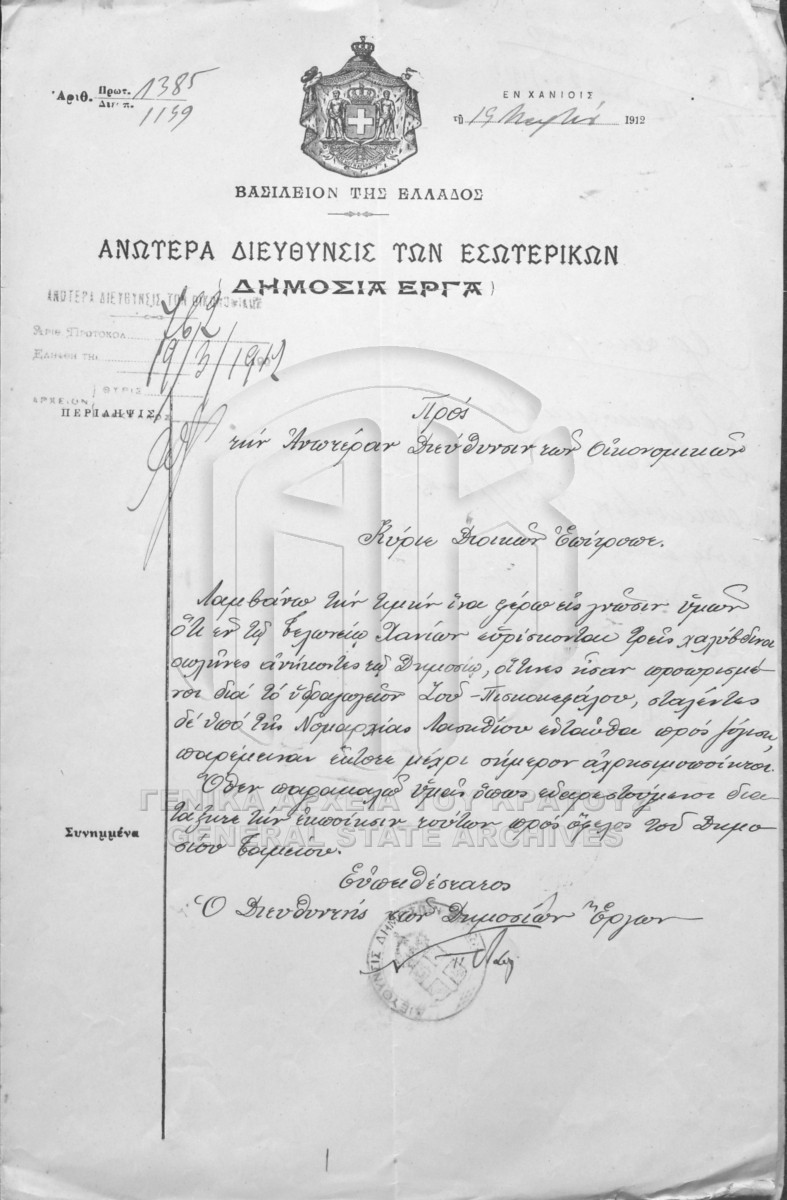 Ἀριθ. Πρωτ. 1385
Διεκπ. 1159
ΕΝ ΧΑΝΙΟΙΣ
τῇ 19 Μαρτίου 1912
ΒΑΣΙΛΕΙΟΝ ΤΗΣ ΕΛΛΑΔΟΣ
ΑΝΩΤΕΡΑ ΔΙΕΥΘΥΝΣΙΣ ΤΩΝ ΕΣΩΤΕΡΙΚΩΝ
(ΔΗΜΟΣΙΑ ΕΡΓΑ)
ΑΝΩΤΕΡΑ ΔΙΕΥΘΥΝΣΙΣ ΤΩΝ ΟΙΚΟΝΟΜΙΚΩΝ
ΑΡΙΘ. ΠΡΩΤΟΚΟΛ. 762
ΕΛΗΦΘΗ ΤΗι 19/3/1912
ΘΥΡΙΣ
ΑΡΧΕΙΟΝ
ΠΕΡΙΛΗΨΙΣ
Πρὸς
τὴν Ἀνωτέραν Διεύθυνσιν τῶν Οἰκονομικῶν
Κύριε Διοικῶν Ἐπίτροπε.
Λαμβάνω τὴν τιμὴν ἵνα φέρω εἰς γνῶσιν ὑμῶν
ὅτι ἐν τῷ Τελωνείῳ Χανίων εὑρίσκονται τρεῖς χαλύβδινοι
σωλῆνες ἀνήκοντες τῷ Δημοσίῳ, οἵτινες ἦσαν προωρισμέ-
νοι διὰ τὸ ὑδραγωγεῖον Ζοῦ-Πισκοκεφάλου, σταλέντες
δὲ ὑπὸ τῆς Νομαρχίας Λασηθίου ἐνταῦθα πρὸς
παρέμειναν ἔκτοτε μέχρι σήμερον ἀχρησιμοποίητοι.
Ὅθεν παρακαλῶ ὑμᾶς ὅπως εὐαρεστούμενοι δια-
τάξητε τὴν ἐκποίησιν τούτων πρὸς ὄφελος τοῦ Δημο-
σίου Ταμείου.
Συνημμένα
Εὐπειθέστατος
Ὁ Διευθυντὴς τῶν Δημοσίων Ἔργων
ΔΙΕΥΘΥΝΣΙΣ ΔΗΜΟΣΙΩΝ
ΓΕΝΙΚΑ ΑΡΧΕΙΑ ΤΟΥ ΚΡΑΤΟΥΣ
GENERAL STATE ARCHIVES